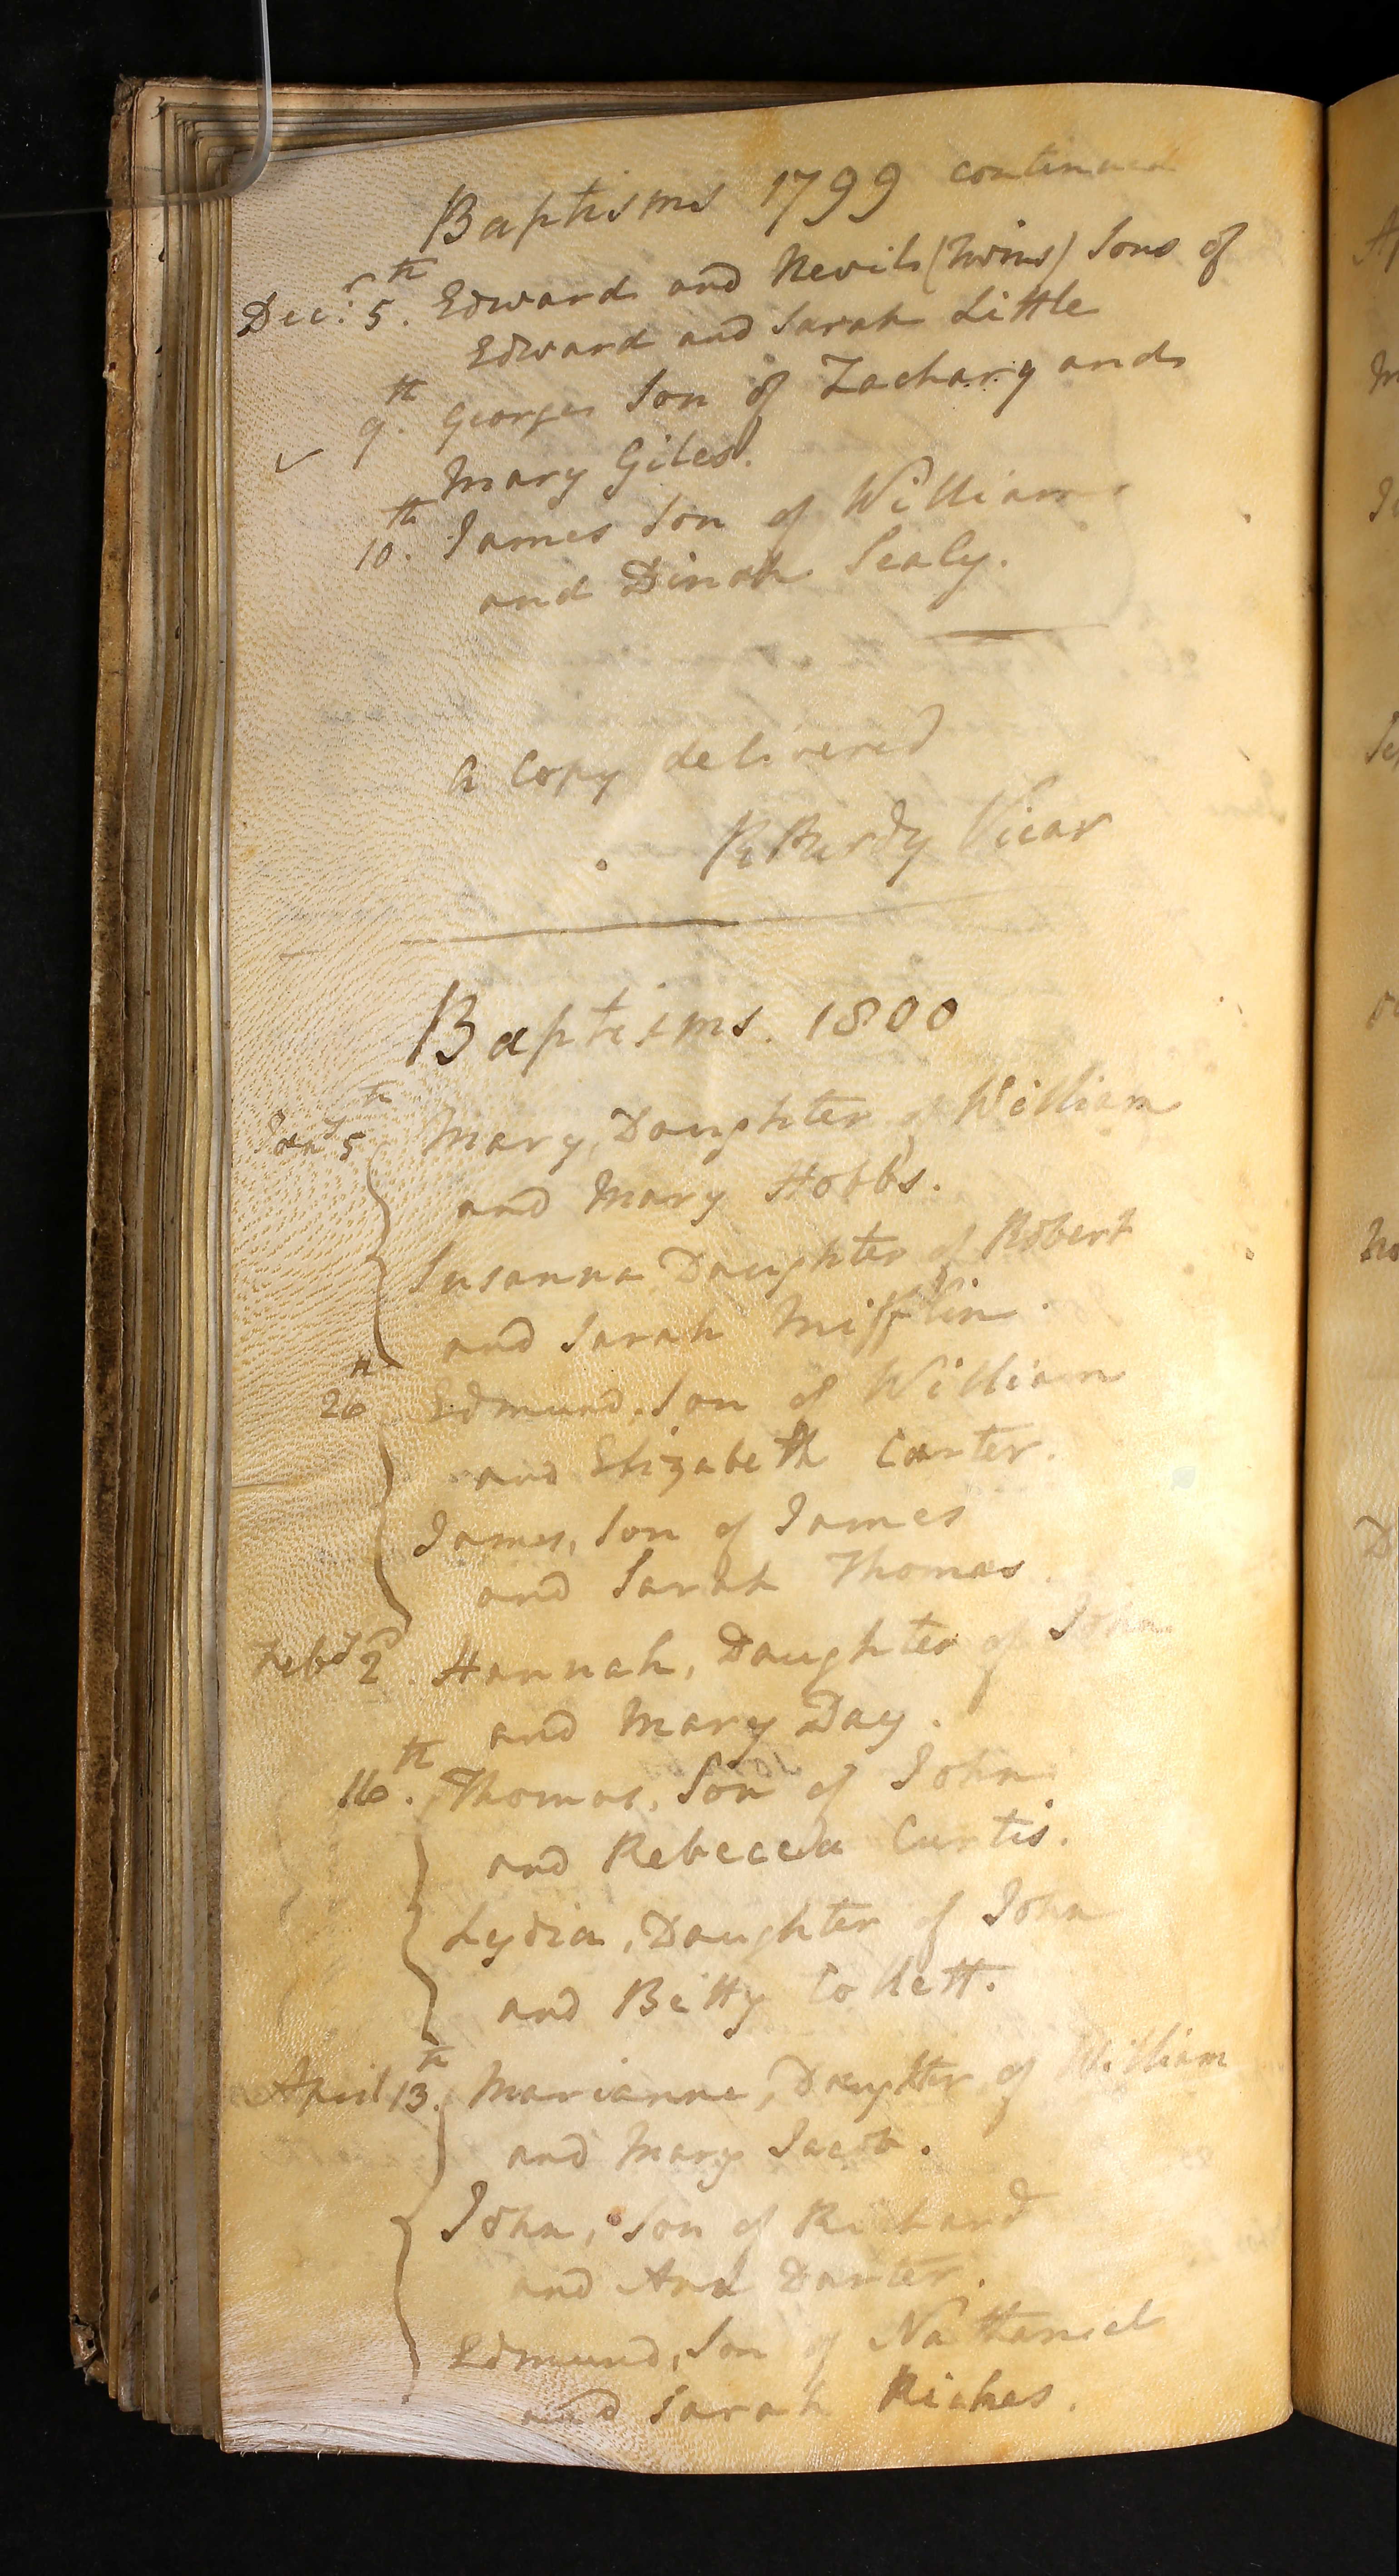 Baptisms 1799 continued
Decr. 5th. Edward and Nevil (Twins) Sons of
Edward and Sarah Little
9th. George Son of Zachary and
Mary Giles.
10th. James Son of William
and Dinah Sealy.
A Copy delivered
R Purdy Vicar
Baptisms. 1800
Jany 5th Mary, Daughter of William
and Mary Hobbs.
Susanna Daughter of Robert
and Sarah Mifflin.
26th Edmund, Son of William
and Elizabeth Carter.
James, Son of James
and Sarah Thomas
Feby 2d. Hannah, Daughter of John
and Mary Day.
16th. Thomas, Son of John
and Rebecca Curtis.
Lydia, Daughter of John
and Betty Collett.
April 13th. Marianne, Daughter of William
and Mary Jacob.
John, Son of Richard
and Ann Danter.
Edmund, Son of Nathaniel
and Sarah Riches.